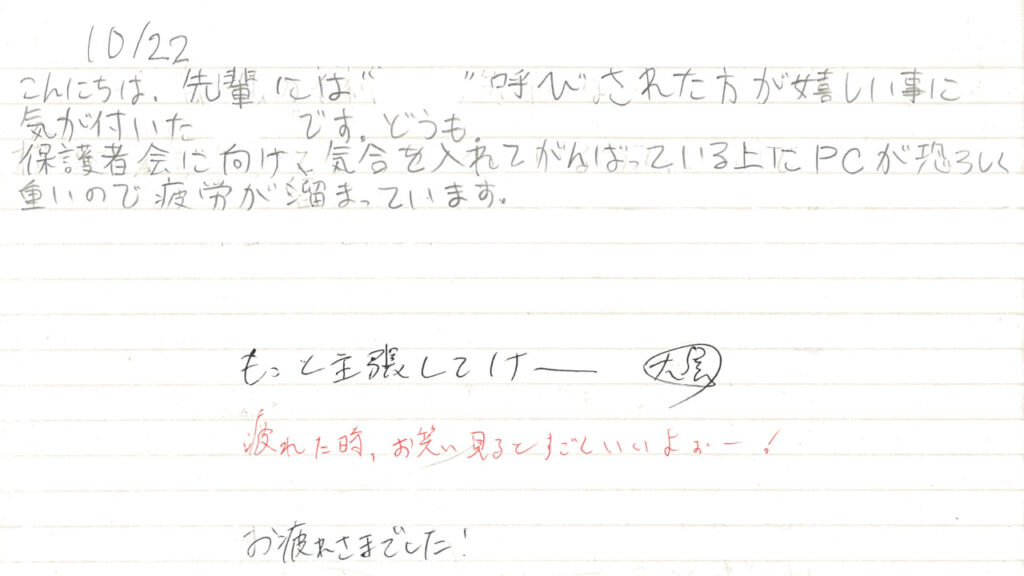 10/22
こんにちは、先輩には“ ”呼びされた方が嬉しい事に
気が付いた です。どうも。
保護者会に向けて気合を入れてがんばっている上にPCが恐ろしく
重いので疲労が溜まっています。
もっと主張してけー
疲れた時、お笑い見るとすごくいいよぉー!
お疲れさまでした!